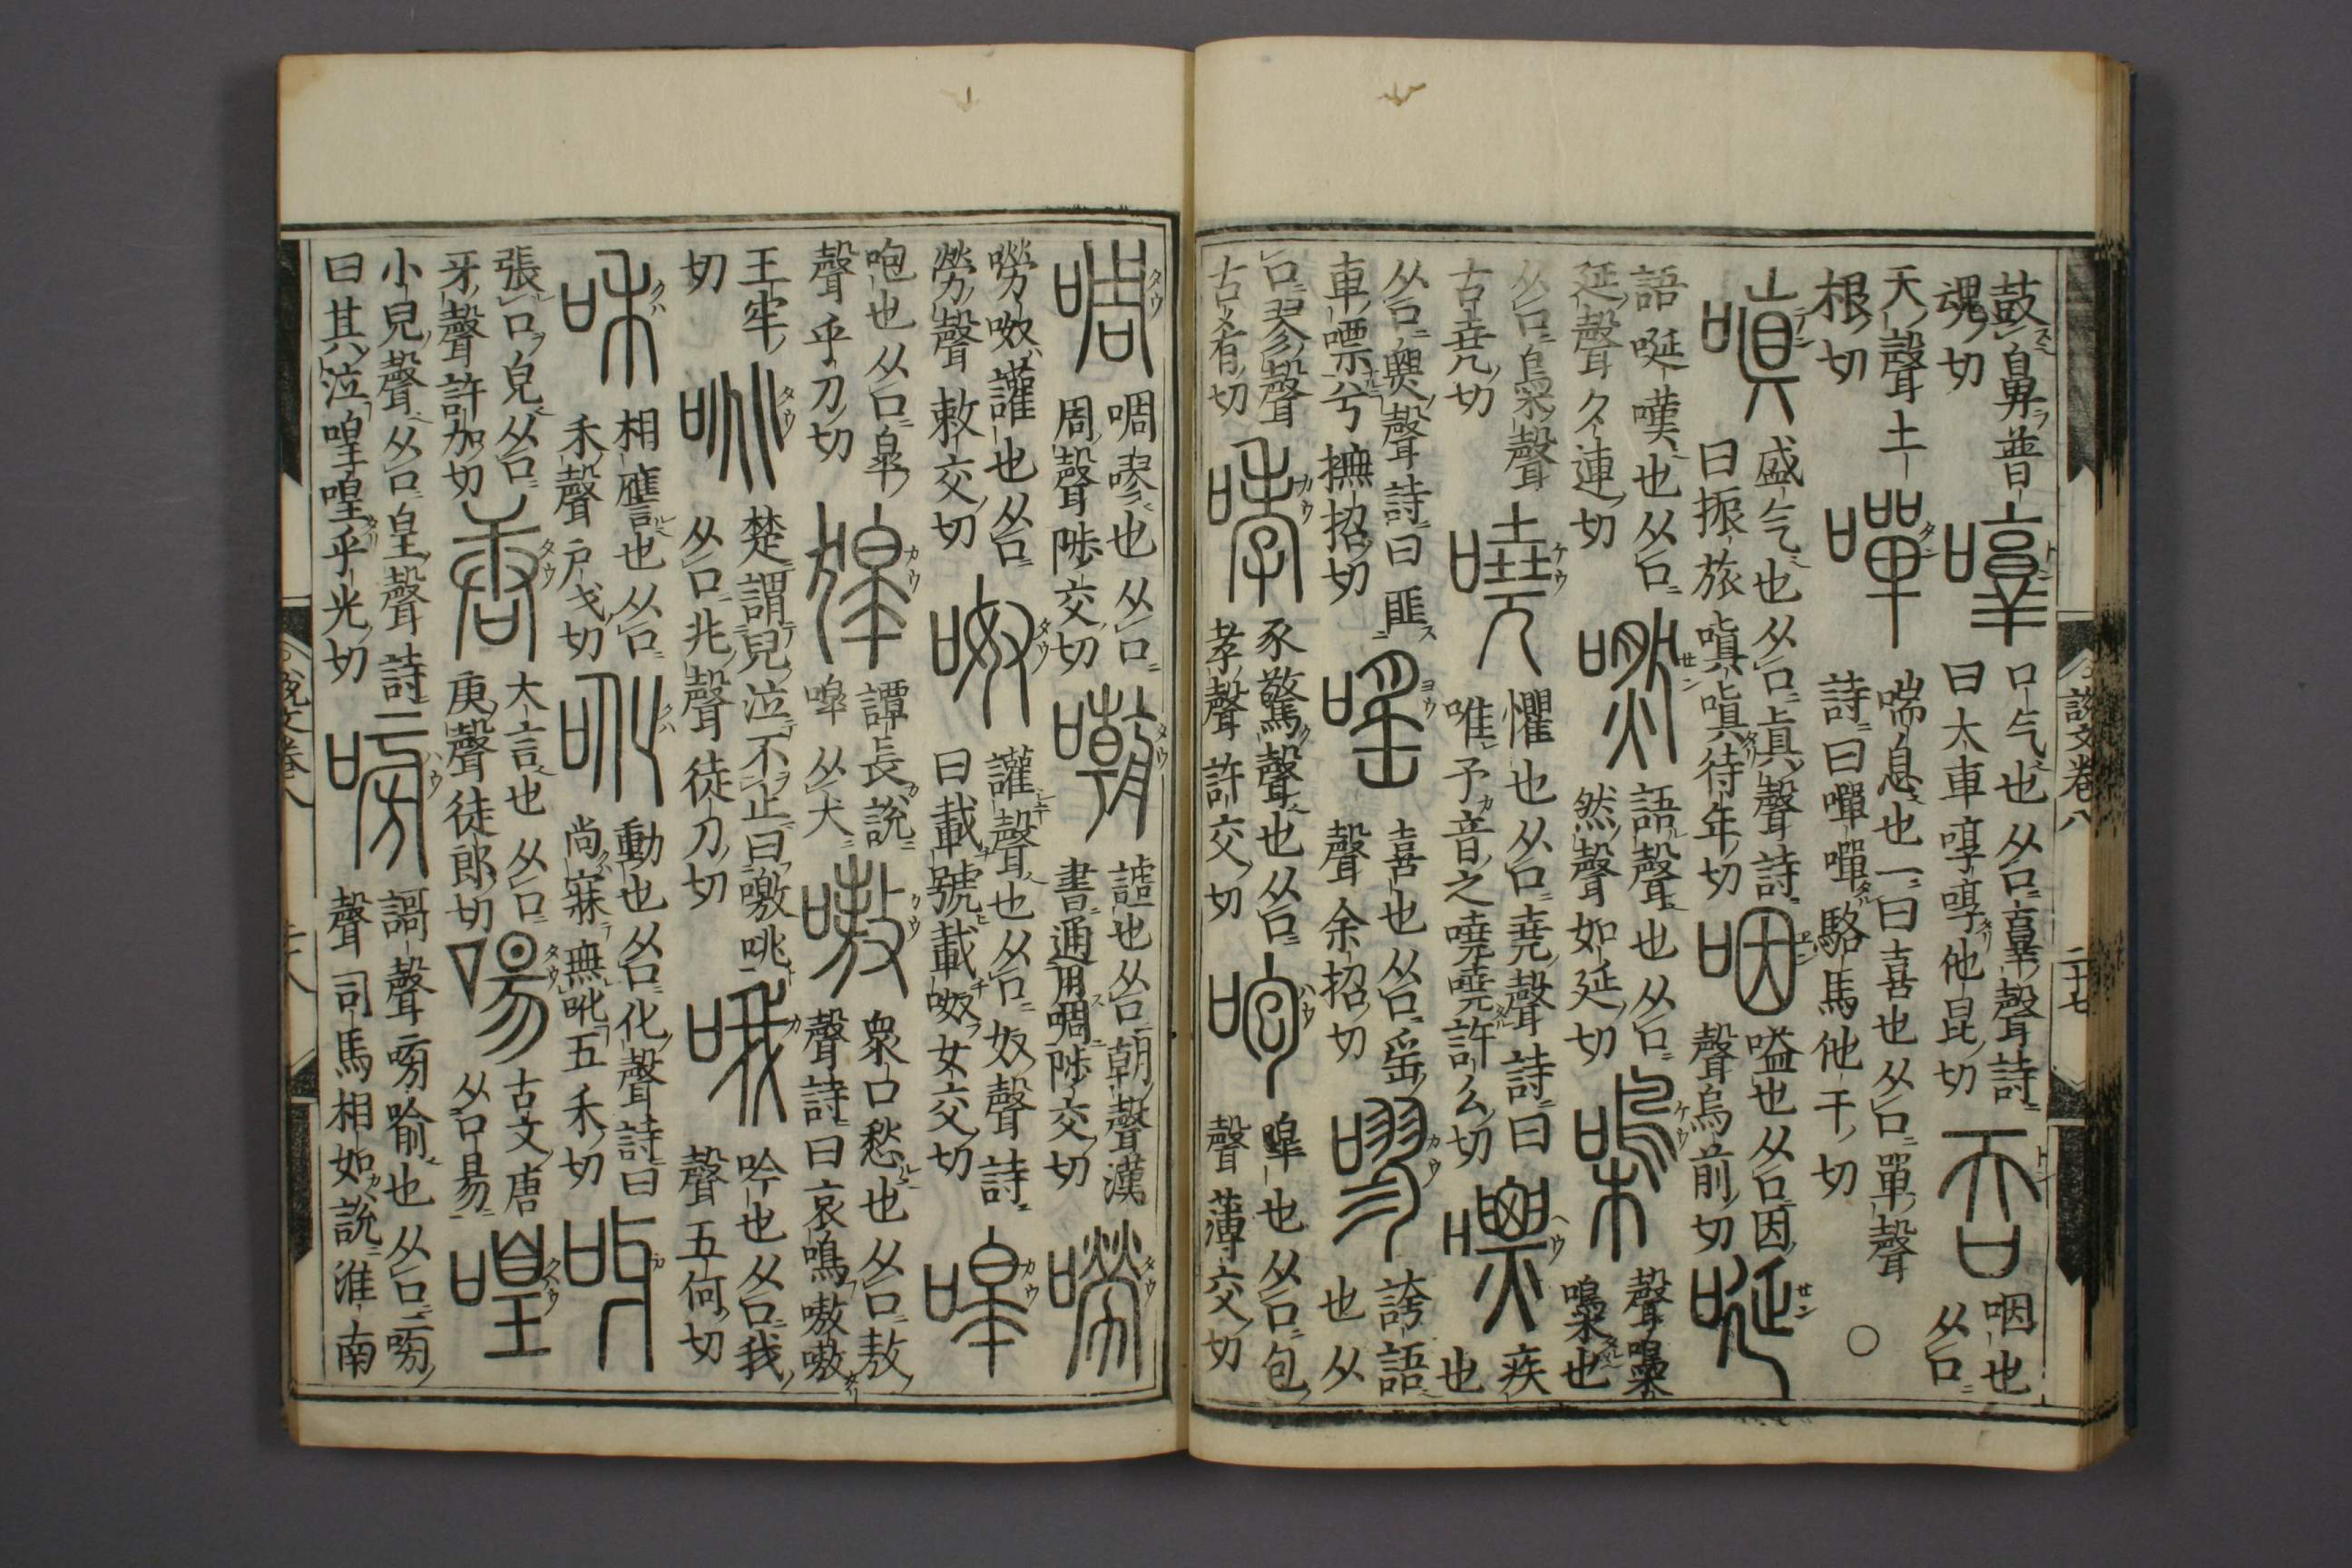 說文卷八 二十七
鼓鼻普魂切噋口气也从口𦎫聲詩曰大車噋噋他昆切吞咽也从口
天聲土根切嘽喘息也一曰喜也从口單聲詩曰嘽嘽駱馬他干切〇
嗔盛气也从口眞聲詩曰振旅嗔嗔待年切咽嗌也从口因聲烏前切唌
語唌嘆也从口延聲夕連切嘫語聲也从口然聲如延切嘄聲嘄嘄也
从口梟聲古堯切嘵懼也从口堯聲詩曰唯予音之嘵嘵許么切嘌疾也
从口㶾聲詩曰匪車嘌兮撫招切嗂喜也从口䍃聲余招切嘐誇語也从
口翏聲古肴切哮豕驚聲也从口孝聲許交切咆嗥也从口包聲薄交切
啁啁嘐也从口周聲陟交切嘲謔也从口朝聲漢書通用啁陟交切嘮
嘮呶讙也从口勞聲敕交切呶讙聲也从口奴聲詩曰載號載呶女交切嗥
咆也从口皋聲乎刀切獋譚長說嗥从犬嗷衆口愁也从口敖聲詩曰哀鳴嗷嗷
王牢切咷楚謂兒泣不止曰噭咷从口兆聲徒刀切哦吟也从口我聲五何切
咊相譍也从口禾聲戶戈切吪動也从口化聲詩曰尚寐無吪五禾切呀
張口皃从口牙聲許加切唐大言也从口庚聲徒郎切啺古文唐从口昜喤
小兒聲从口皇聲詩曰其泣喤喤乎光切嗙謌聲嗙喻也从口㫄聲司馬相如說淮南
說文卷八